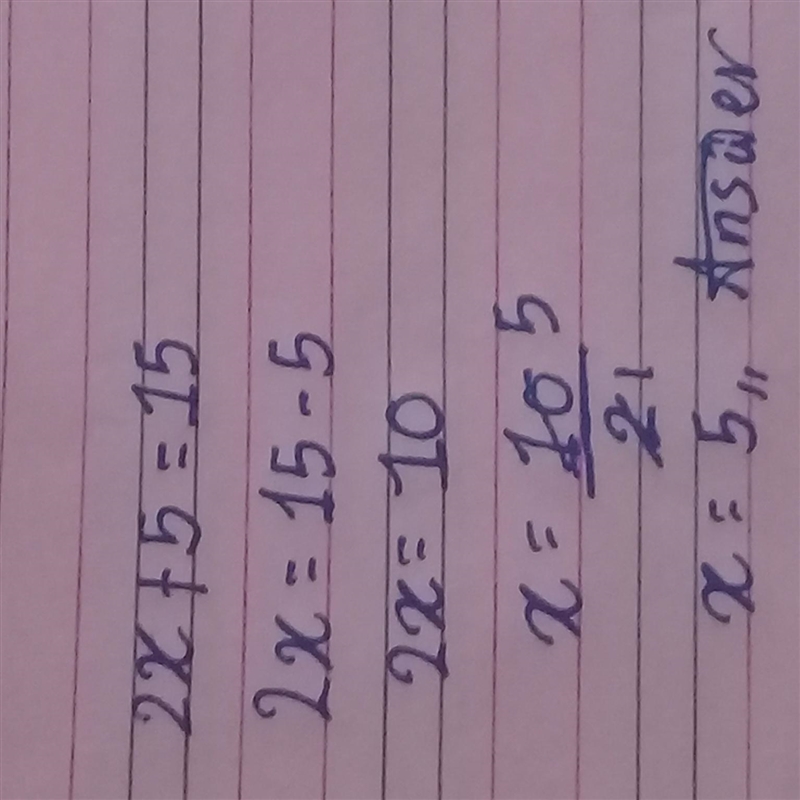 2x + 5 = 15
2x = 15 - 5
2x = 10
x = 10 5
2 1
x = 5,, Answer